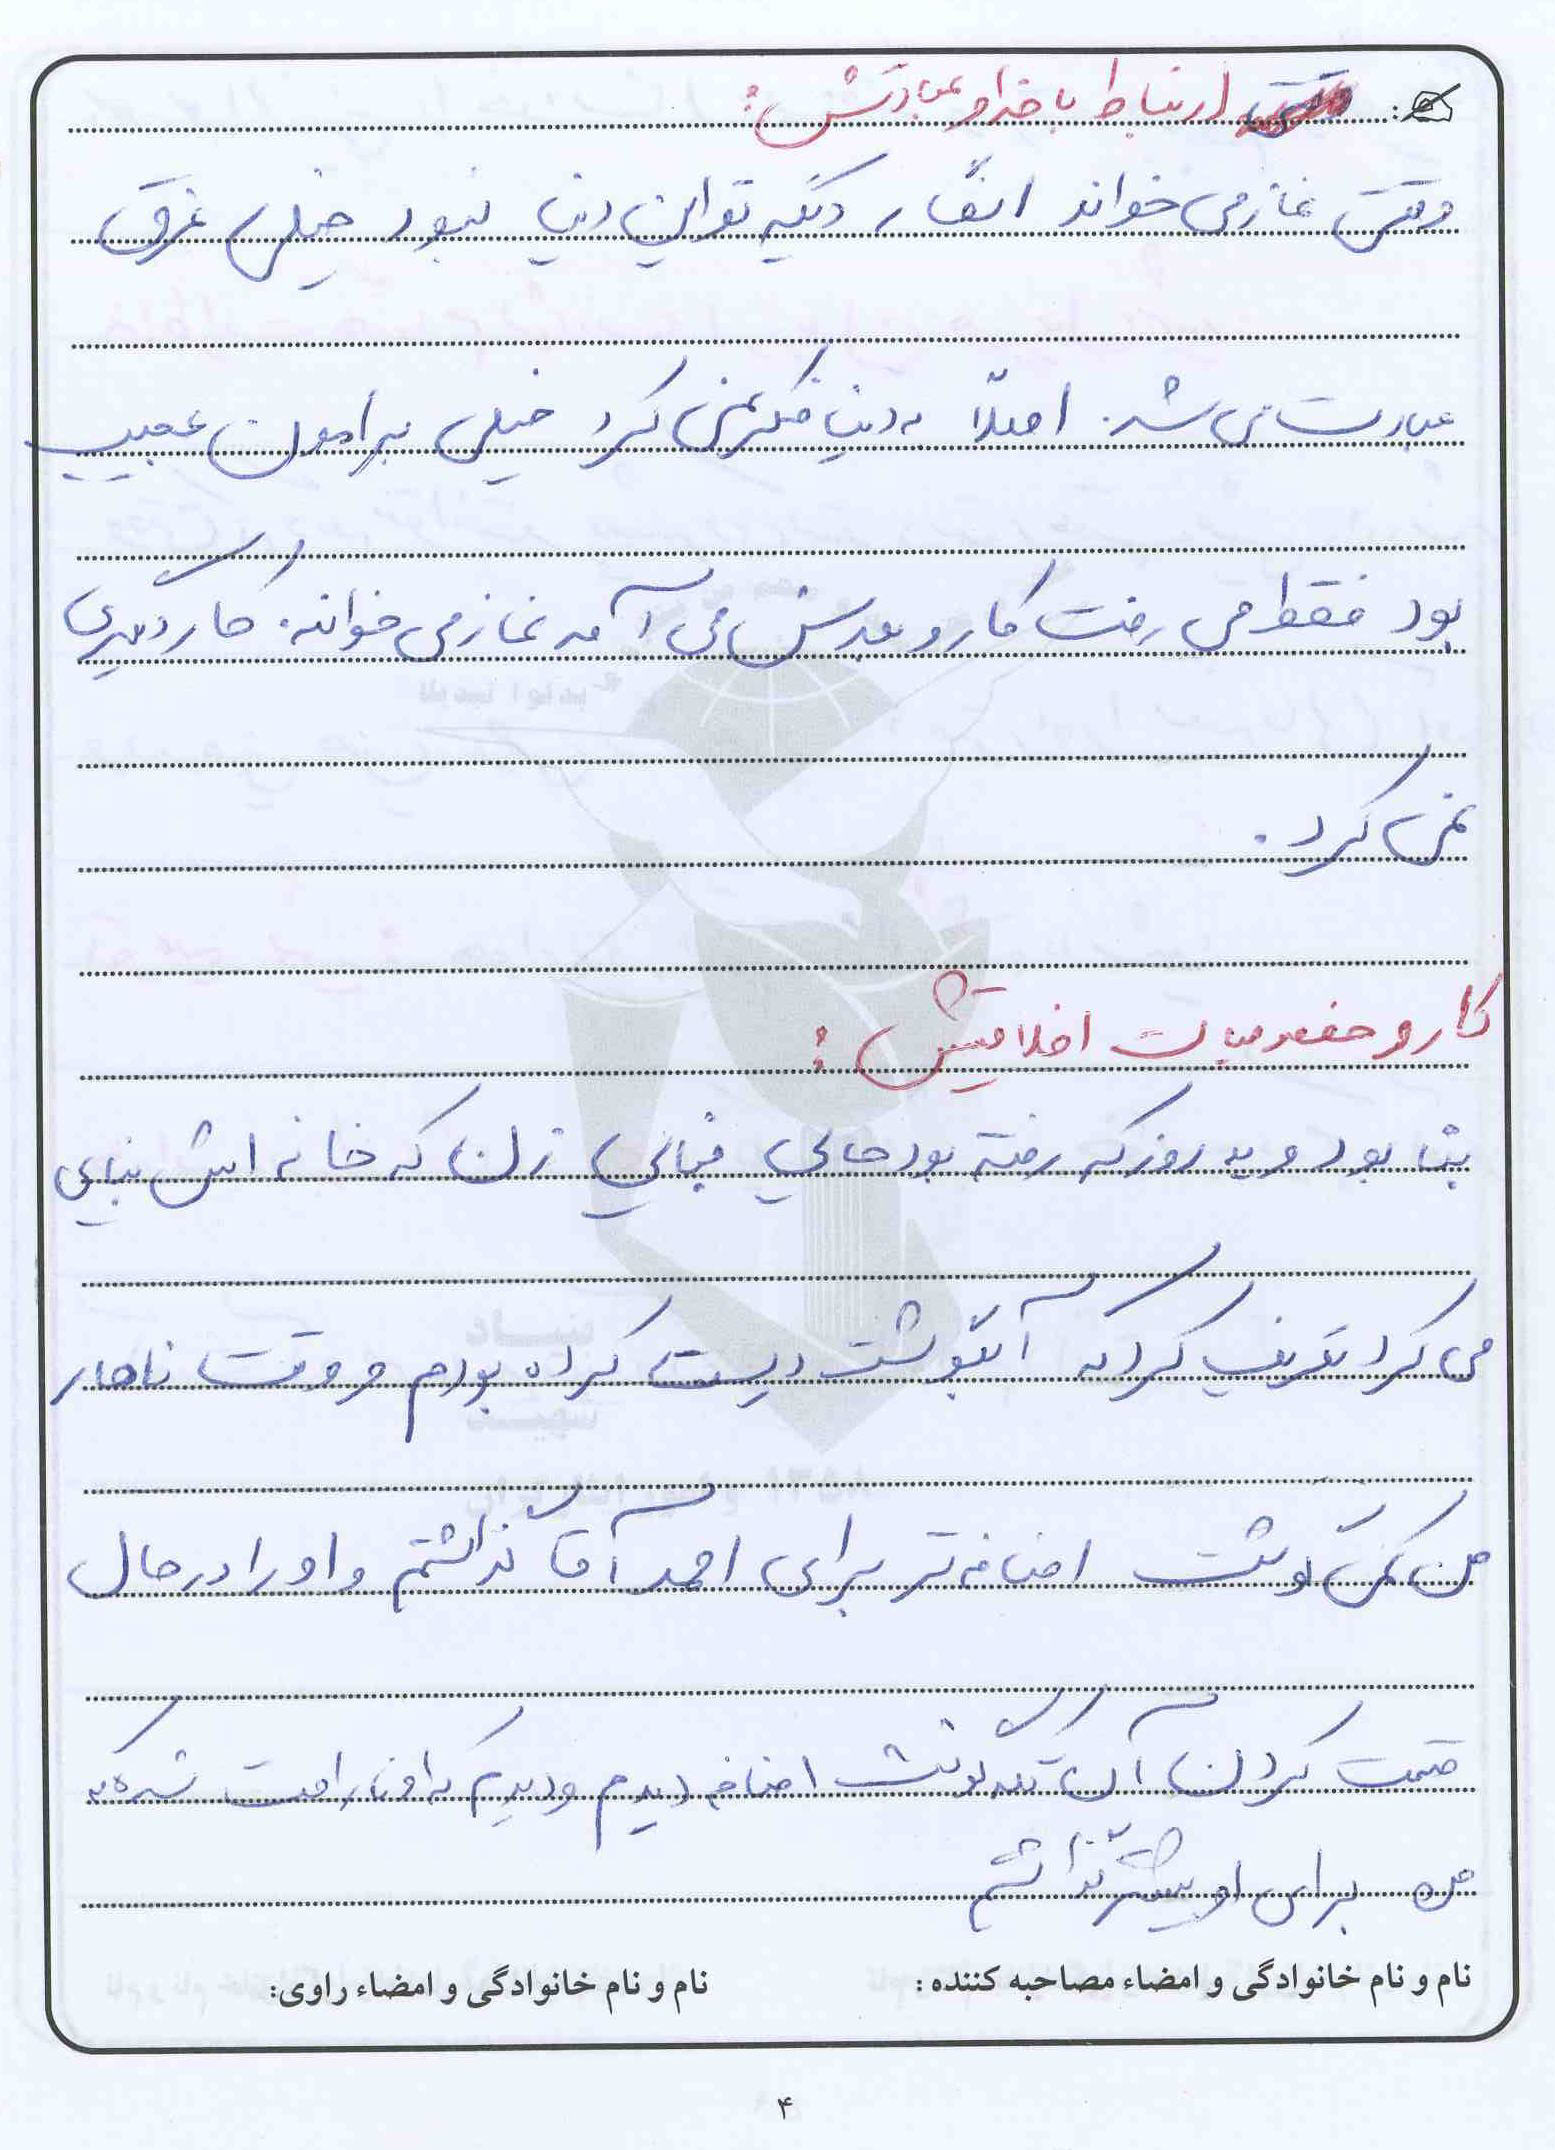 ارتباط با خدا و عبادتش:
وقتی نماز می خواند انگار دیگه تو این دنیا نبود خیلی غرق
عبادت می شد. اصلاً به دنیا فکر نمی کرد خیلی برامون عجیب
بود فقط می رفت کار و بعدش می آمد نماز می خواند. کار دیگری
نمی کرد.
کار و خصوصیات اخلاقیش:
بنا بود و یه روز که رفته بود جایی بنایی زن که خانه اش بنایی
می کرد تعریف کرد که آبگوشت درست کرده بودم و وقت ناهار
من کمی گوشت اضافه تر برای احمد آقا گذاشتم و او را در حال
قسمت کردن آن تکه گوشت اضافه دیدم و دیدم که او ناراحت شده که
من برای او بیشتر گذاشتم
نام و نام خانوادگی و امضاء مصاحبه کننده: نام و نام خانوادگی و امضاء راوی:
۴